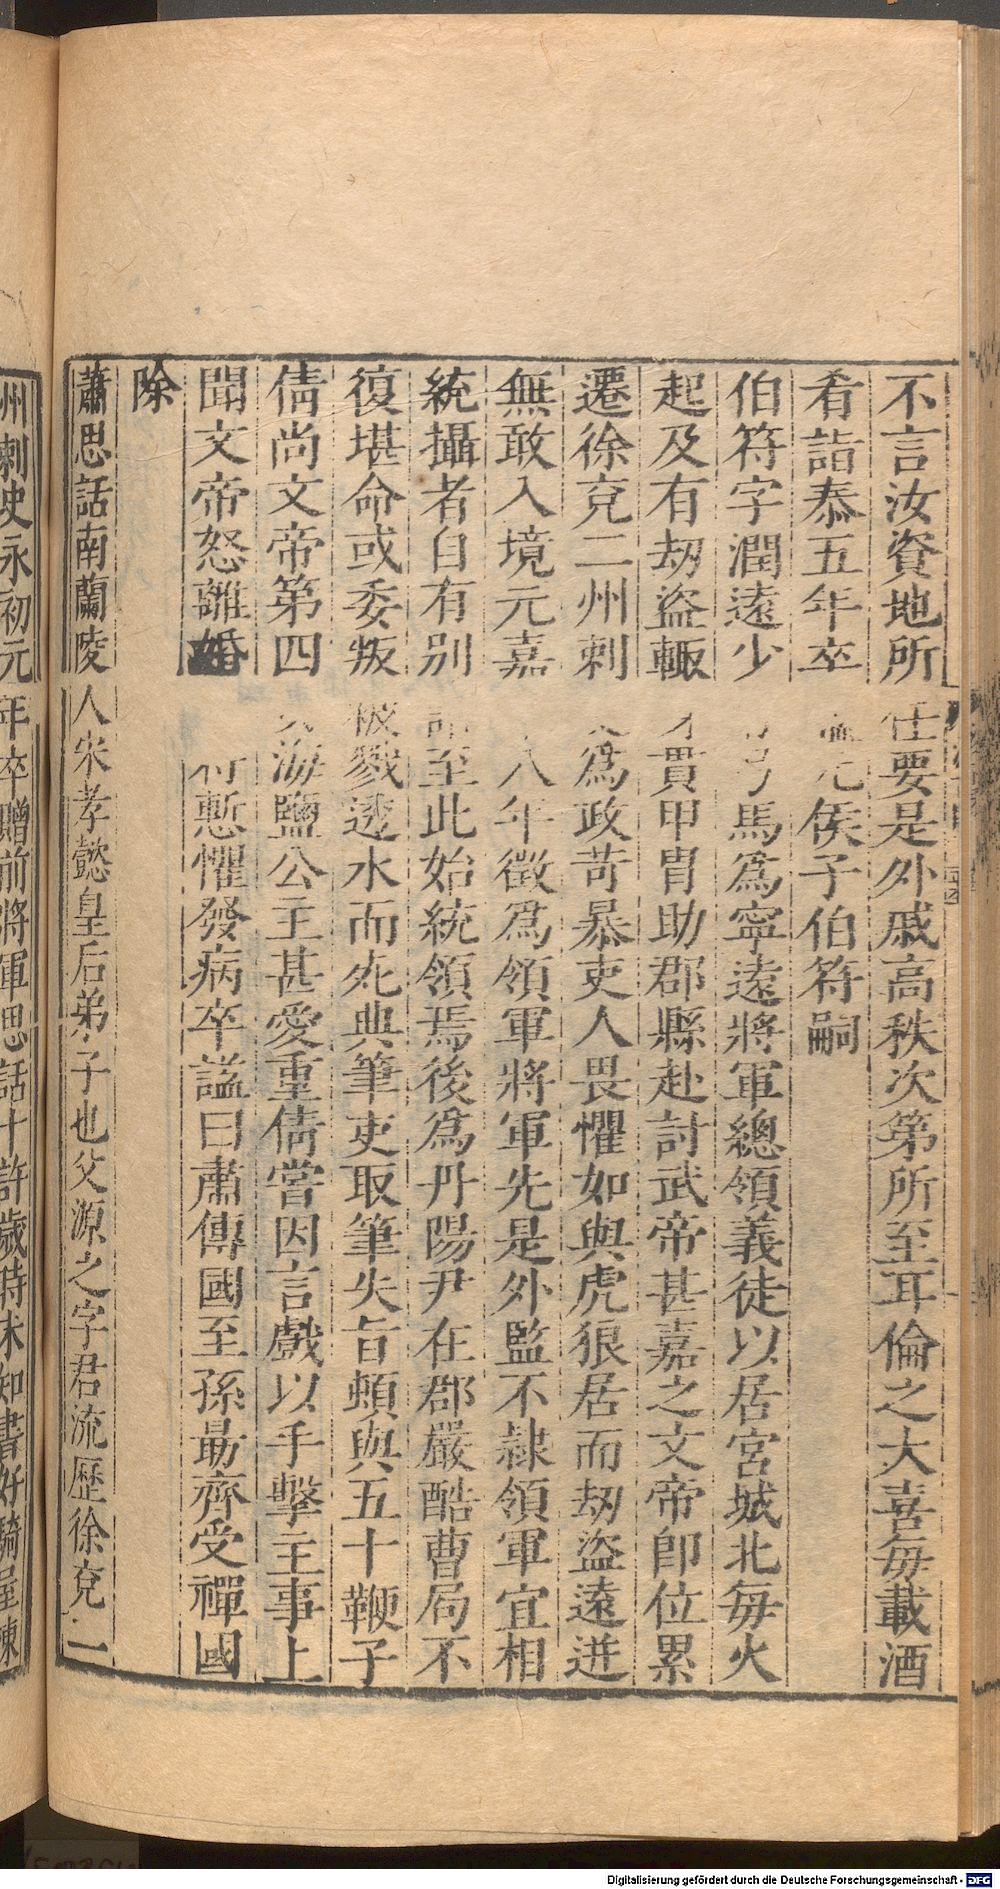 不言汝資地所任要是外戚高秩次第所至耳倫之大喜毎載酒
肴詣泰五年卒諡元侯子伯符嗣
伯符字潤遠少好弓馬爲寧遠將軍總領義徒以居宮城北毎火
起及有刧盜輒身貫甲胄助郡縣赴討武帝甚嘉之文帝卽位累
遷徐兗二州刺史爲政苛暴吏人畏懼如與虎狼居而刧盜遠迸
無敢入境元嘉十八年徵爲領軍將軍先是外監不隷領軍宜相
統攝者自有别詔至此始統領焉後爲丹陽尹在郡嚴酷曹局不
復堪命或委叛被戮透水而死典筆吏取筆失旨頓與五十鞭子
倩尚文帝第四女海鹽公主甚愛重倩嘗因言戲以手擊主事上
聞文帝怒離婚倩慙懼發病卒諡曰肅傳國至孫勗齊受禪國
除
蕭思話南蘭陵人宋孝懿皇后弟子也父源之字君流歷徐兗二
州刺史永初元年卒贈前將軍思話十許歲時未知書好騎屋棟
Digitalisierung gefördert durch die Deutsche Forschungsgemeinschaft - DFG